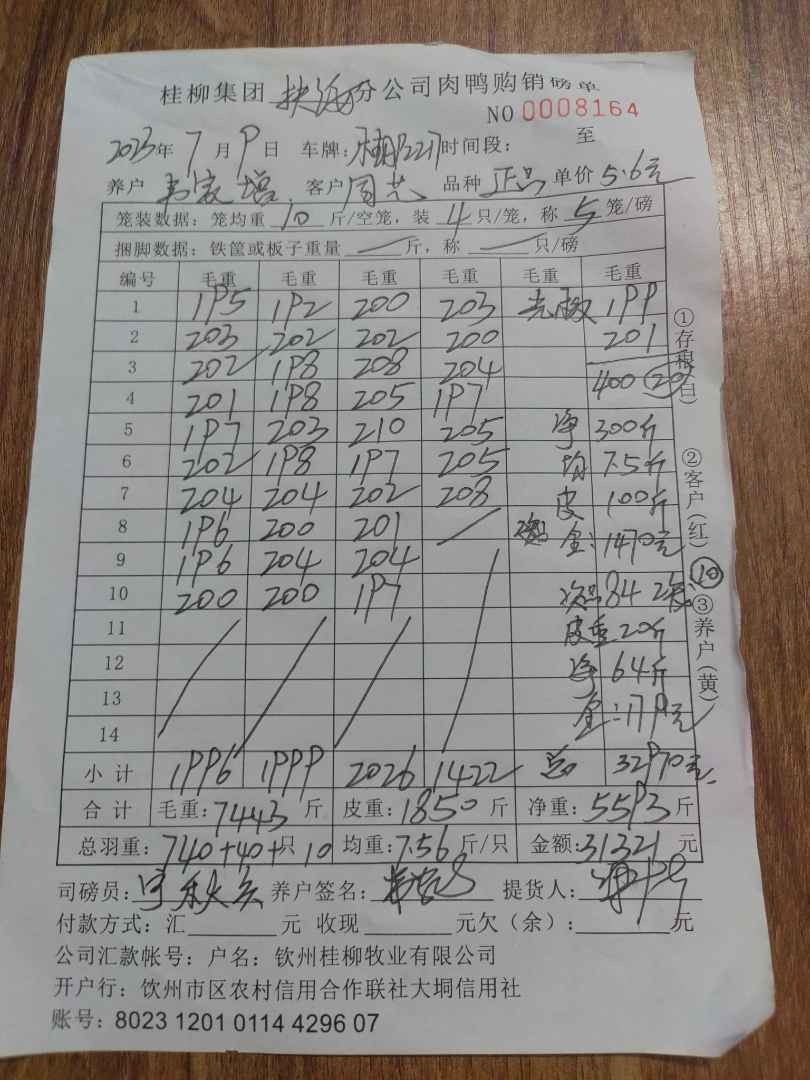 桂柳集团 扶海分公司肉鸭购销磅单
NO 0008164
2023年 7 月 9 日 车牌: 时间段: 至
养户 韦家增 客户 周艺 品种 正品 单价 5.6元
笼装数据: 笼均重 10 斤/空笼, 装 4 只/笼, 称 5 笼/磅
捆脚数据: 铁筐或板子重量 — 斤, 称 — 只/磅
编号 毛重 毛重 毛重 毛重 毛重 毛重
1 195 192 200 203 199
2 203 202 202 200 201
3 202 198 208 204 400 20
4 201 198 205 197
5 197 203 210 205 净 300斤
6 202 198 197 205 均 7.5斤
7 204 204 202 208 皮 100斤
8 196 200 201 金: 1470元
9 196 204 204
10 200 200 197 次品 84 2笼 10
11 皮重 20斤
12 净 64斤
13 金: 179元
14
小计 1996 1999 2026 1422 总 32970元
合计 毛重: 7443 斤 皮重: 1850 斤 净重: 5593 斤
总羽重: 740+40+只 10 均重: 7.56 斤/只 金额: 31321 元
司磅员: 养户签名: 提货人:
付款方式: 汇 元 收现 元欠(余): 元
公司汇款帐号: 户名: 钦州桂柳牧业有限公司
开户行: 饮州市区农村信用合作联社大垌信用社
账号: 8023 1201 0114 4296 07
①存根(白)
②客户(红)
③养户(黄)